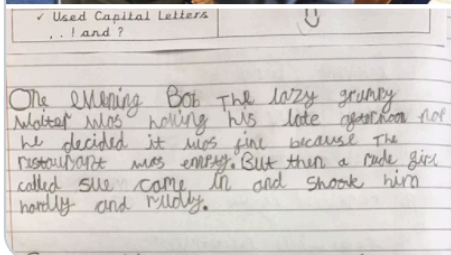 ✓ Used Capital Letters
. , ! and ?
One evening Bob The lazy grumpy
waiter was having his late afternoon nap
he decided it was fine because The
restaurant was empty. But then a rude girl
called sue came in and shook him
hardly and rudly.